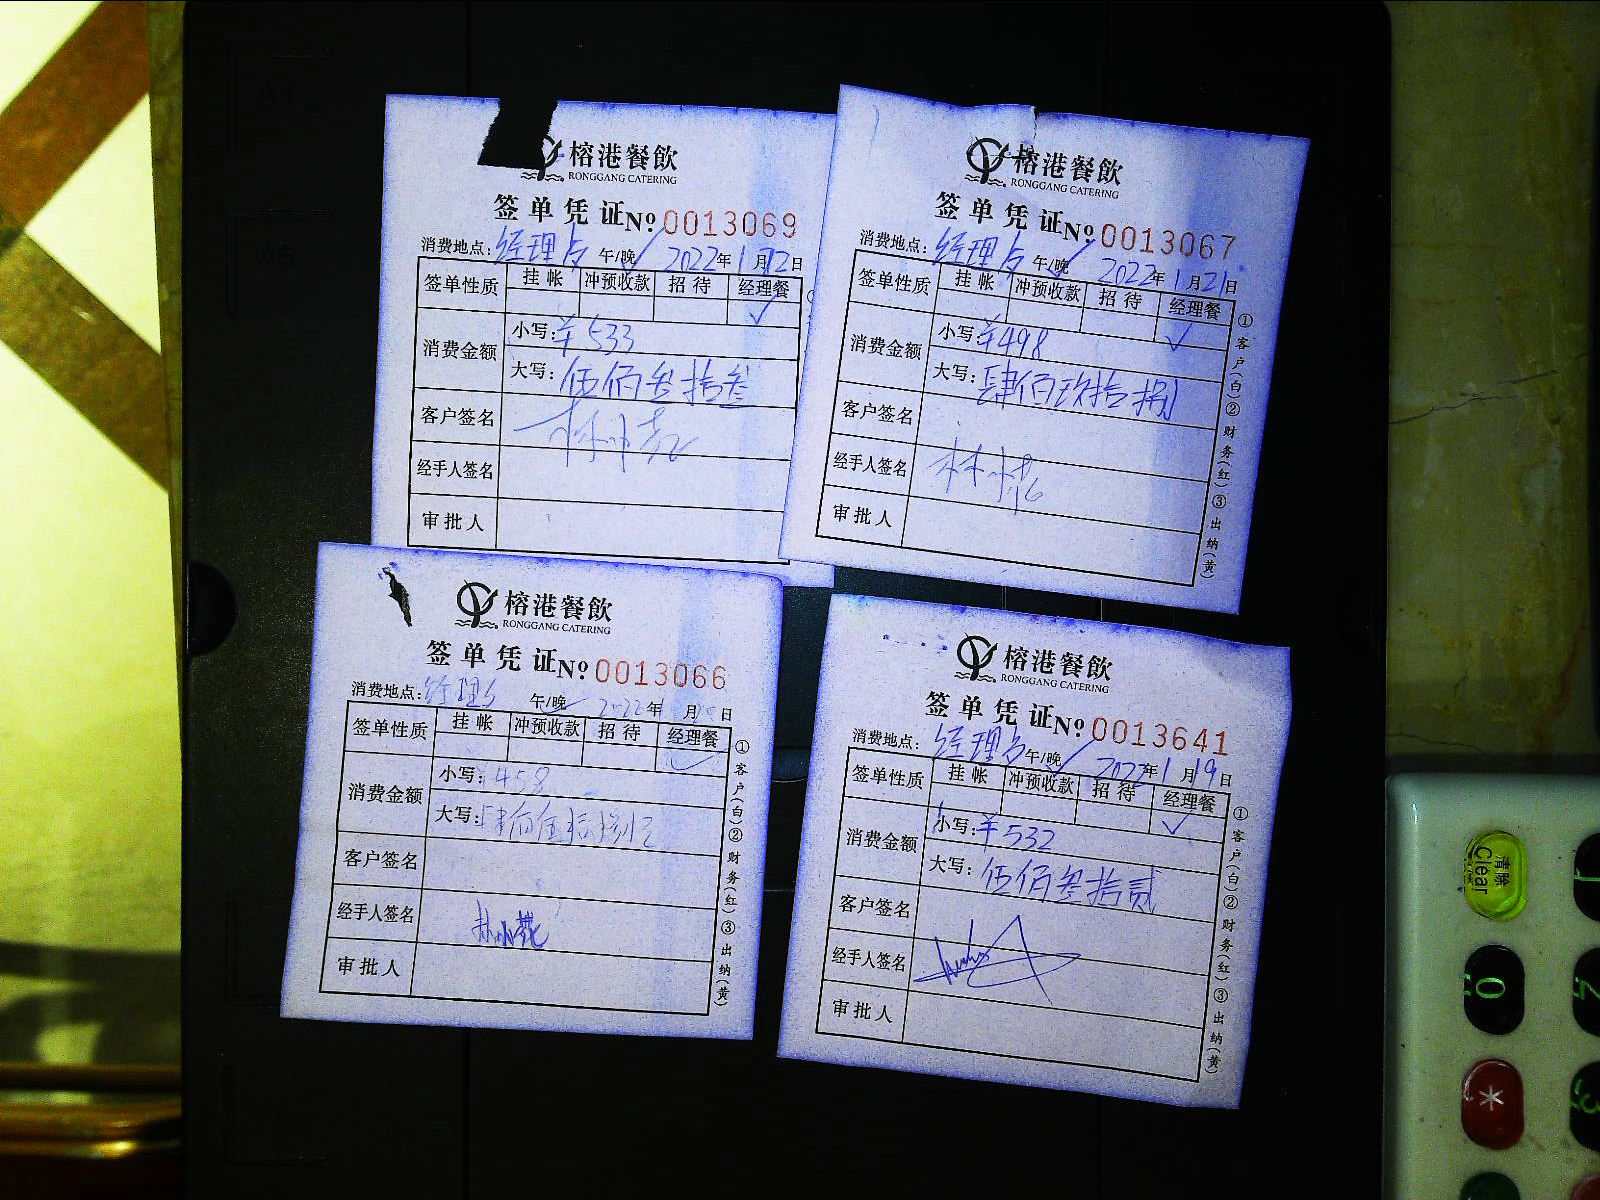 榕港餐飲
RONGGANG CATERING
签单凭证 No 0013069
消费地点: 经理台 午/晚 2022年1月12日
签单性质 挂帐 冲预收款 招待 经理餐
✓
消费金额 小写: ¥533
大写: 伍佰叁拾叁
客户签名
经手人签名
审批人
榕港餐飲
RONGGANG CATERING
签单凭证 No 0013067
消费地点: 经理台 午/晚 2022年1月21日
签单性质 挂帐 冲预收款 招待 经理餐
✓
消费金额 小写: ¥498
大写: 肆佰玖拾捌
客户签名
经手人签名
审批人
①客户(白)②财务(红)③出纳(黄)
榕港餐飲
RONGGANG CATERING
签单凭证 No 0013066
消费地点: 经理台 午/晚 2022年 月20日
签单性质 挂帐 冲预收款 招待 经理餐
✓
消费金额 小写: 458
大写: 肆佰伍拾捌元
客户签名
经手人签名
审批人
①客户(白)②财务(红)③出纳(黄)
榕港餐飲
RONGGANG CATERING
签单凭证 No 0013641
消费地点: 经理台 午/晚 2022年1月19日
签单性质 挂帐 冲预收款 招待 经理餐
✓
消费金额 小写: ¥532
大写: 伍佰叁拾贰
客户签名
经手人签名
审批人
①客户(白)②财务(红)③出纳(黄)
清除
Clear
0
*